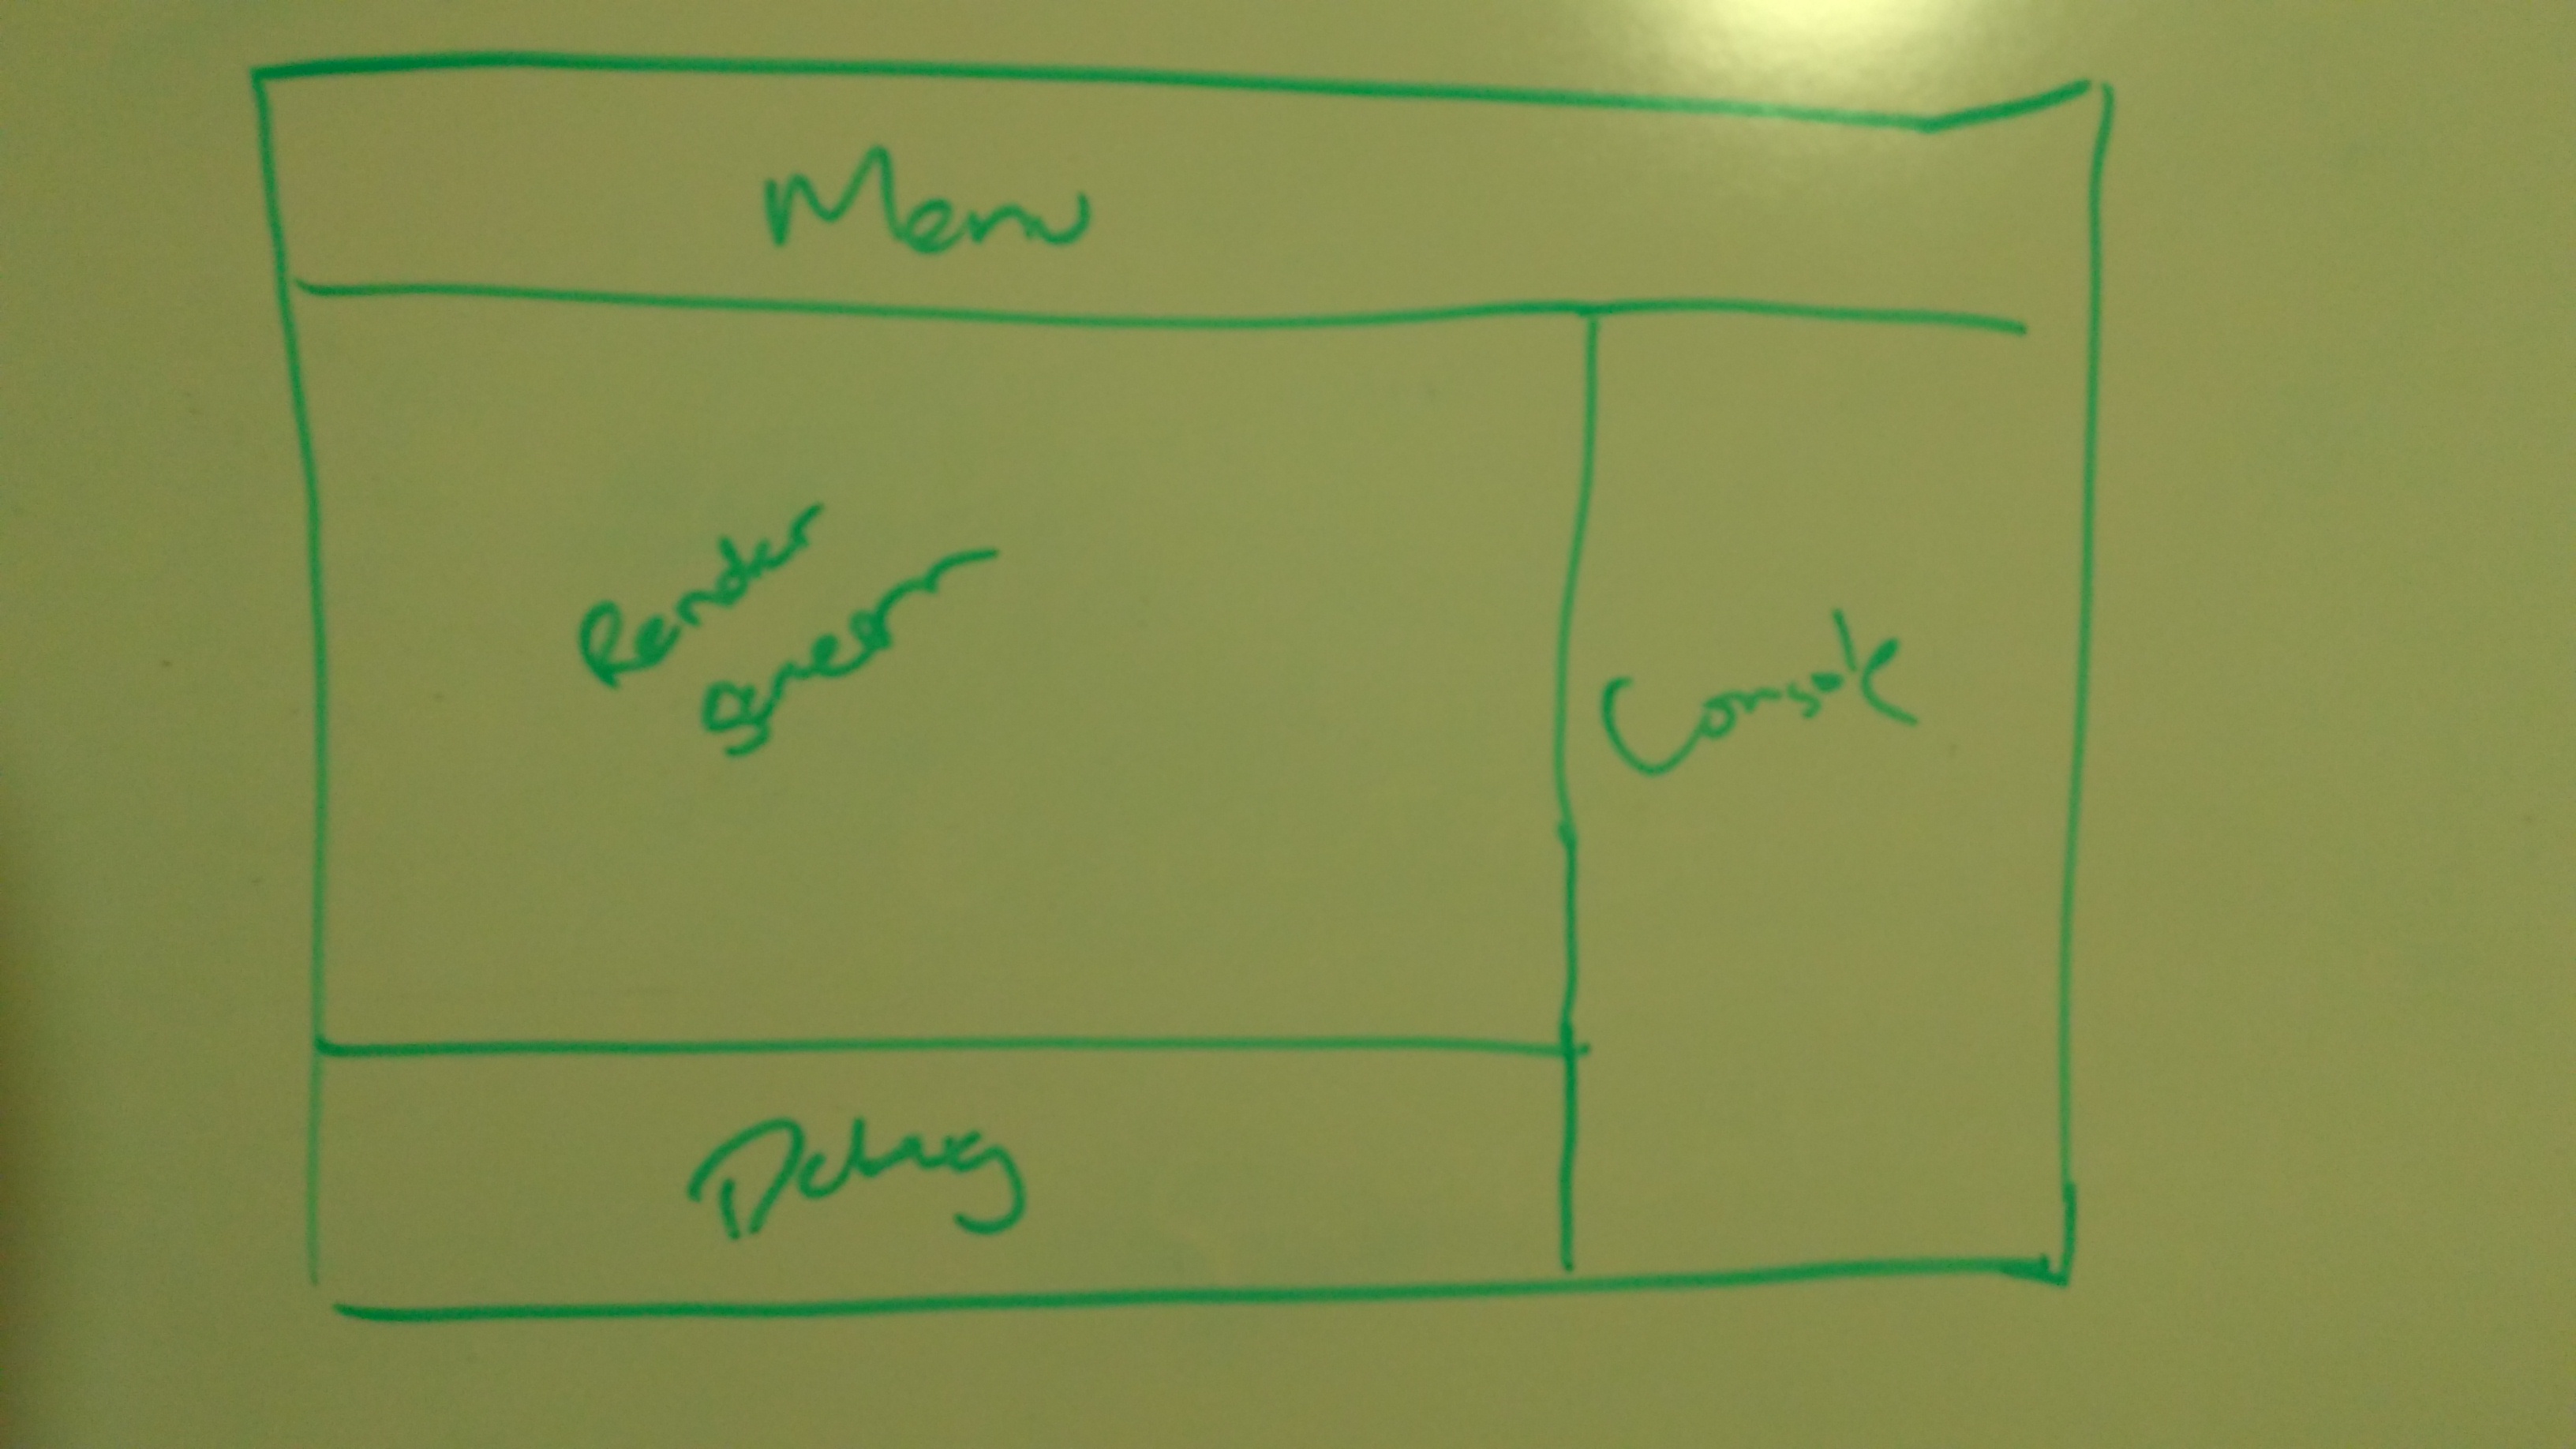 Menu
Render
Screen
Console
Debug